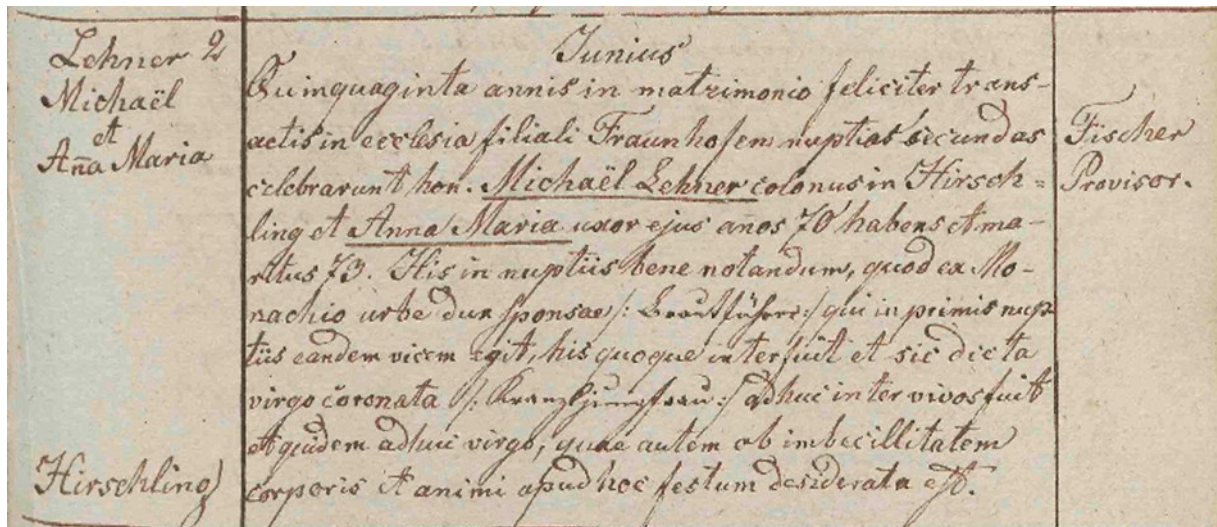 Lehner 2
Michaël
et
Aña Maria
Hirschling
Junius
Quinquaginta annis in matrimonio feliciter trans-
actis in ecclesia filiali Fraunhofen nuptias secundas
celebrarunt hon. Michaël Lehner colonus in Hirsch=
ling et Anna Maria uxor ejus años 70 habens et ma-
ritus 73. His in nuptiis bene notandum, quod ex Mo-
nachio urbe dux sponsae /: Brautführer :/ qui in primis nup
tiis eandem vicem egit, his quoque interfuit et sic dicta
virgo coronata /: Kranzljungfrau :/ adhuc inter vivos fuit
et quidem adhuc virgo, quae autem ob imbecillitatem
corporis et animi apud hoc festum desiderata est.
Fischer
Provisor.